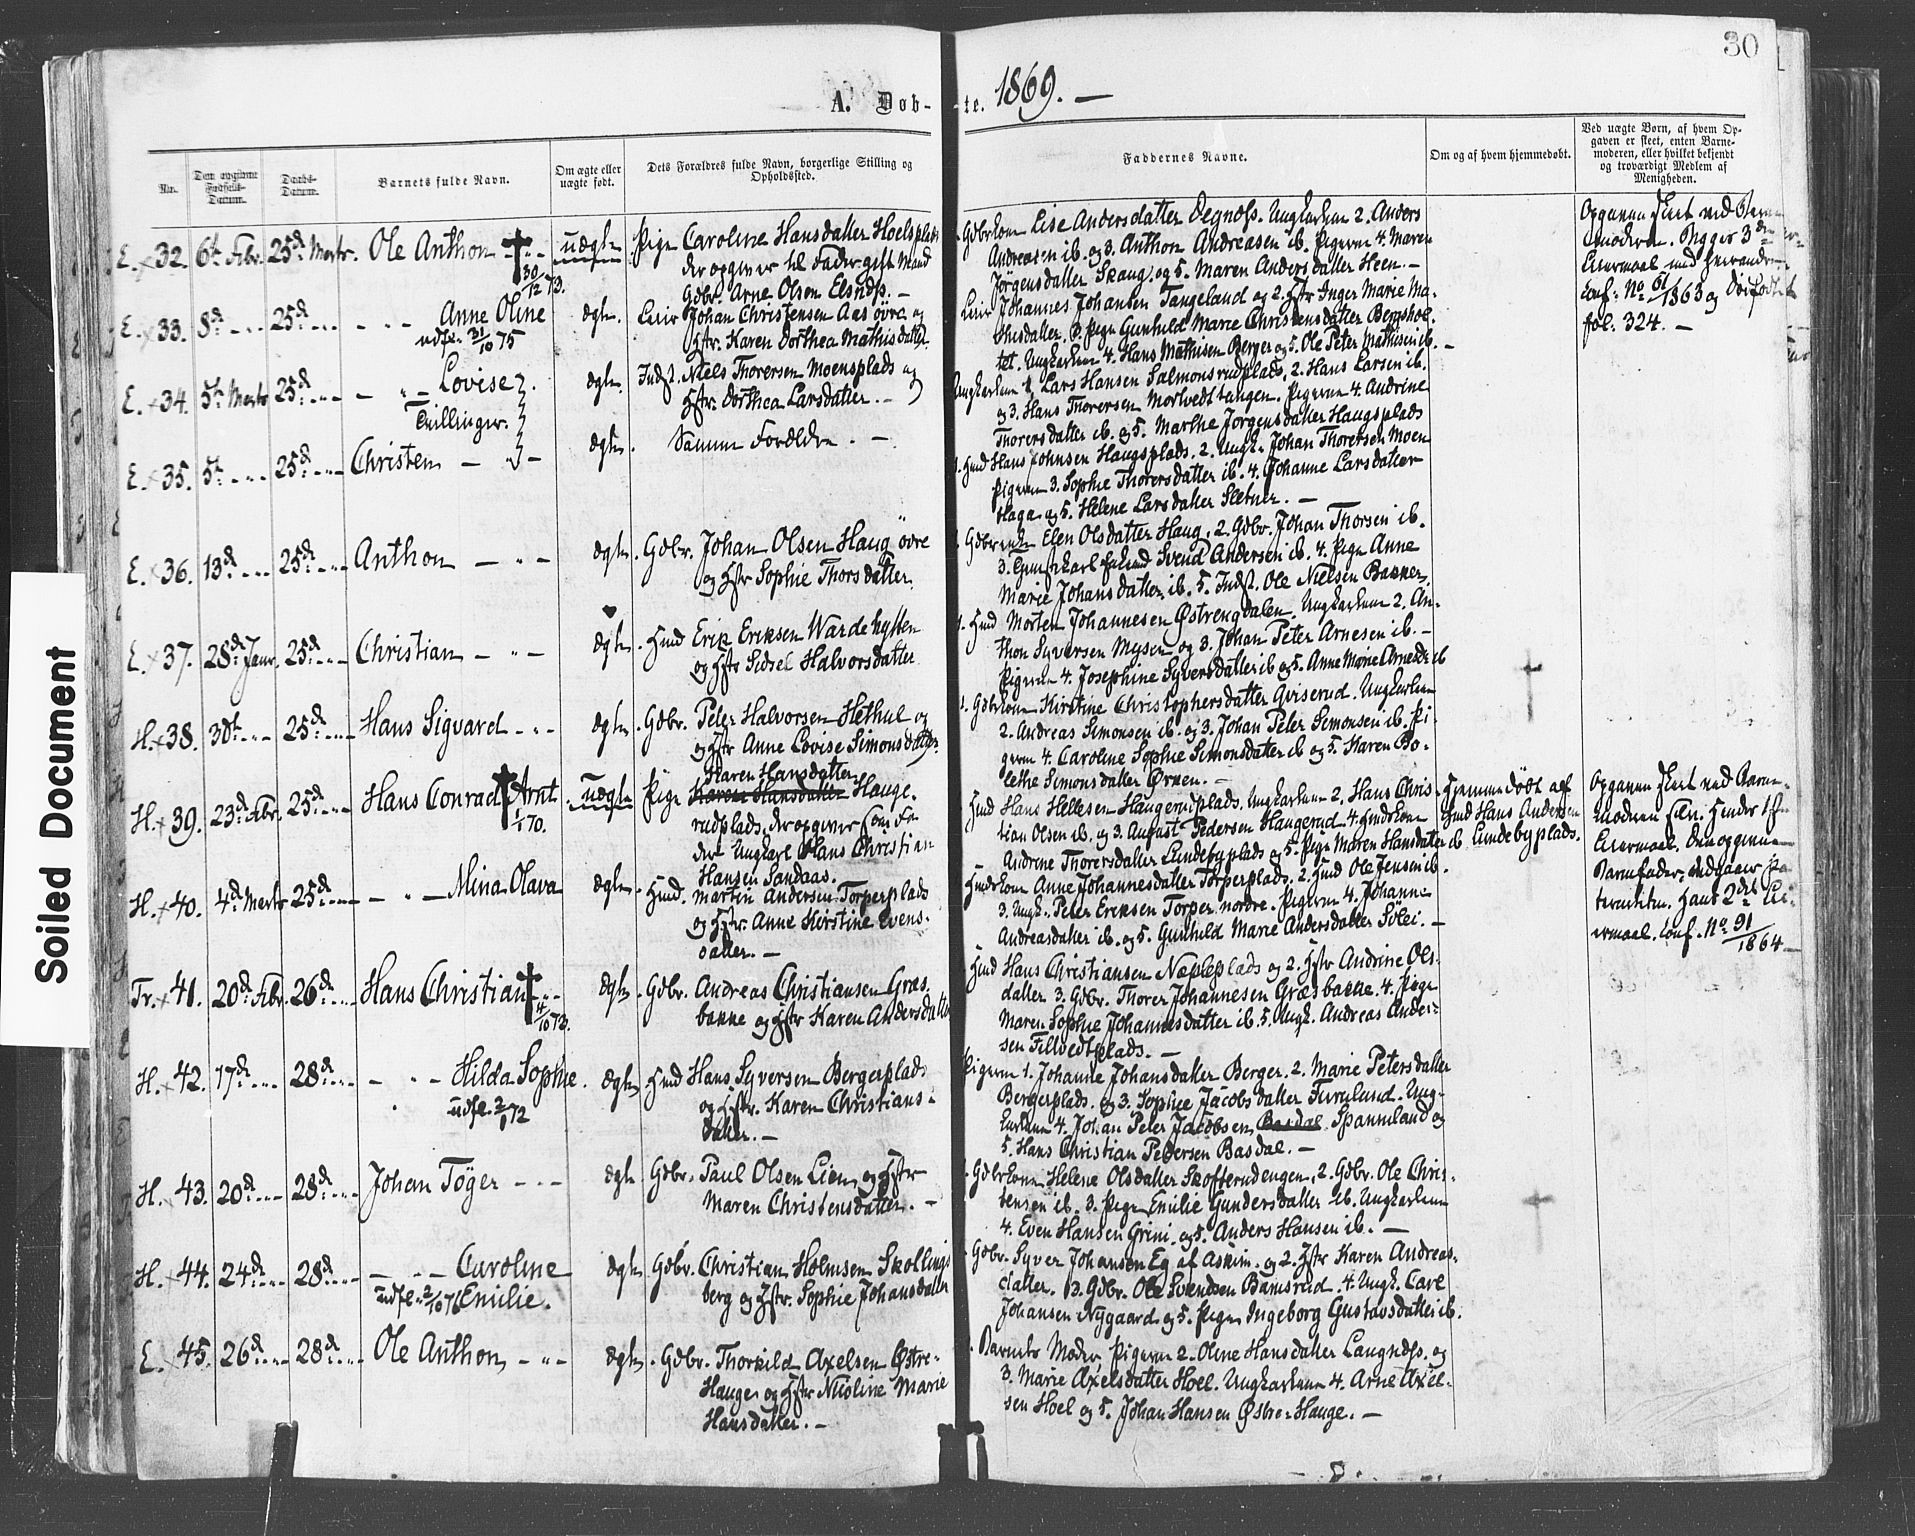 30
A. Døb-
te. 1869. —
No.
Den opgivne Fødsels-Datum.
Daabs-Datum.
Barnets fulde Navn.
Om ægte eller uægte født.
Dets Forældres fulde Navn, borgerlige Stilling og Opholdssted.
Faddernes Navne.
Om og af hvem hjemmedøbt.
Ved uægte Børn, af hvem Op-
gaven er skeet, enten Barne-
moderen, eller hvilket bekjendt
og troværdigt Medlem af
Menigheden.
Soiled Document
E. 32. 6te Febr. 25de Marts. Ole Anthon 30/12 73. uægte Pige Caroline Hansdatter Hoelsplads
der opgiver til Fader gift Mand
Gdbr. Arne Olsen Elsnæss. —
Gdbrkone Lise Andersdatter Degnæss. Ungkarlene 2. Anders
Andreasen ib. og 3. Anthon Andreasen ib. Pigerne 4. Maren
Jørgensdatter Skaug, og 5. Maren Andersdatter Heen. —
Opgaven skeet ved Barne-
moderen. Begges 3die
Leiermaal med hverandre.
conf. No 61/1863 og
fol. 324. —
E. 33. 8de 25de Anne Oline
udfl. 31/10 75
ægte. Leier Johan Christensen Aas øvre og
Hstr. Karen Dorthea Mathisdatter
Leier Johannes Johansen Tangeland og 2. Hstr Inger Marie Ma-
thisdatter. 3. Pige Gunhild Marie Christensdatter Bergshol-
tet. Ungkarlene 4. Hans Mathisen Berger og 5. Ole Peter Mathisen ib. —
E. 34. 5te Marts 25de Lovise
Tvillinger.
ægte Indst. Niels Thorersen Moensplads og
Hstr. Dorthea Larsdatter. —
Ungkarlene 1. Lars Hansen Salmonsrudplads, 2. Hans Larsen ib.
og 3. Hans Thorersen Mortvedttangen. Pigerne 4. Andrine
Thorersdatter ib. og 5. Marthe Jørgensdatter Haugsplads
E. 35. 5te 25de Christen
ægte. Samme Forældre. —
Hmd Hans Johnsen Haugsplads. 2. Ungk. Johan Thorersen Moen
Pigerne 3. Sophie Thorersdatter ib. 4. Johanne Larsdatter
Haga og 5. Helene Larsdatter Sletner. —
E. 36. 13de 25de Anthon
ægte. Gdbr. Johan Olsen Haug øvre
og Hstr Sophie Thorsdatter.
Gdbrenke Elen Olsdatter Haug, 2. Gdbr. Johan Thorsen ib.
3. Svend Andersen ib. 4. Pige Anne
Marie Johansdatter ib. 5. Indst. Ole Nielsen Bakken.
E. 37. 28de Janr. 25de Christian
ægte. Hmd Erik Eriksen Wardehytten
og Hstr Sidsel Halvorsdatter
Hmd Morten Johannesen Østrengdalen. Ungkarlene 2. An-
thon Syversen Mysen og 3. Johan Peter Arnesen ib. —
Pigerne 4. Josephine Syversdatter ib og 5. Anne Marie Arnesdr ib
H. 38. 30te 25de Hans Sigvard
ægte. Gdbr. Peter Halvorsen Hethul og
og Hstr Anne Lovise Simonsdatter.
Gdbrkone Kirstine Christophersdatter Gviserud. Ungkarlene
2. Andreas Simonsen ib. og 3. Johan Peter Simonsen ib. Pi-
gerne 4. Caroline Sophie Simonsdatter ib og 5. Karen Bo-
lethe Simonsdatter Ørnen. —
H. 39. 23de Febr. 25de Hans Conrad Arnt 1/1 70.
uægte Pige Karen Hansdatter Karen Hansdatter Hauge-
rudplads, der opgiver som Fa-
der Ungkarl Hans Christian
Hansen Sandaas.
Hmd Hans Hellesen Haugerudplads. Ungkarlene 2. Hans Chris-
tian Olsen ib. og 3. August Pedersen Haugerud. 4. Hmdskone
Andrine Thorersdatter Lundebyplads og 5. Pige Maren Hansdatter ib
Hjemmedøbt af
Hmd Hans Andersen
Lundebyplads.
Opgaven skeet ved Barne-
moderen selv. Hendes 1ste
Leiermaal. Den opgivne
Barnefader vedgaaer Pa-
terniteten. Hans 2det Lei-
ermaal. conf. No 91/1864 —
H. 40. 4de Marts 25de Mina Olava
ægte. Hmd. Martin Andersen Torperplads
og Hstr. Anne Kirstine Evens-
datter. —
Hmdskone Anne Johannesdatter Torperplads. 2. Hmd Ole Jensen ib.
3. Ungk. Peter Eriksen Torper nordre. Pigerne 4. Johanne
Andreasdatter ib. og 5. Gunhild Marie Andersdatter Sölei. —
Tr. 41. 20de Febr. 26de Hans Christian 4/10 73.
ægte. Gdbr. Andreas Christiansen Græs-
bakke og Hstr Karen Andersdatter
Hmd Hans Christiansen Næpleplads og 2. Hstr Andrine Ols-
datter 3. Gdbr. Thorer Johannesen Græsbakke. 4. Pige
Maren Sophie Johannesdatter ib. 5. Ungk. Andreas Ander-
sen Fillvedtplads. —
H. 42. 17de 28de Hilda Sophie.
udfl. 2/1 72
ægte Hmd Hans Syversen Bergerplads
og Hstr. Karen Christians-
datter. —
Pigerne 1. Johanne Johansdatter Berger. 2. Marie Petersdatter
Bergerplads. og 3. Sophie Jacobsdatter Furulund. Ung-
karlene 4. Johan Peter Jacobsen Basdal Spannland og
5. Hans Christian Pedersen Basdal. —
H. 43. 20de 28de Johan Töger
ægte Gdbr. Paul Olsen Lien og Hstr
Maren Christensdatter. —
Gdbrkone Helene Olsdatter Skofterudengen, 2. Gdbr. Ole Chris-
tensen ib. 3. Pige Emilie Gundersdatter ib. Ungkarlene
4. Even Hansen Grini. og 5. Anders Hansen ib. —
H. 44. 24de 28de Caroline
udfl. 2/10 76 Emilie.
ægte Gdbr. Christian Holmsen Skollings-
berg og Hstr. Sophie Johansdatter
Gdbr. Syver Johansen Eg af Askim. og 2. Hstr Karen Andreas-
datter. 3. Gdbr. Ole Svendsen Bamsrud. 4. Ungk. Carl
Johansen Nygaard og 5. Pige Ingeborg Gustavsdatter ib.
E. 45. 26de 28de Ole Anthon
ægte. Gdbr. Thorkild Axelsen Østre-
Hauge og Hstr Nicoline Marie
Hansdatter. —
Barnets Moder. Pigerne 2. Oline Hansdatter Langnæs. og
3. Marie Axelsdatter Hoel. Ungkarlene 4. Arne Axel-
sen Hoel og 5. Johan Hansen Østre-Hauge. —